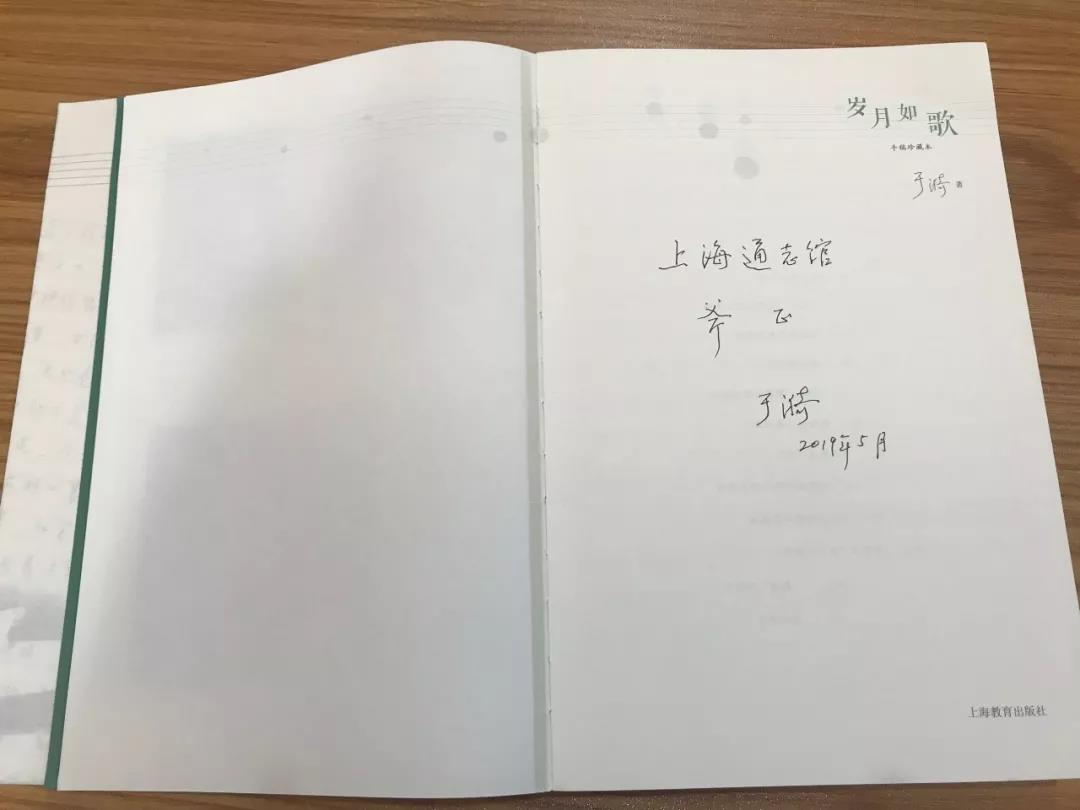 岁月如歌
手稿珍藏本
于漪 著
上海通志馆
斧正
于漪
2019年5月
上海教育出版社